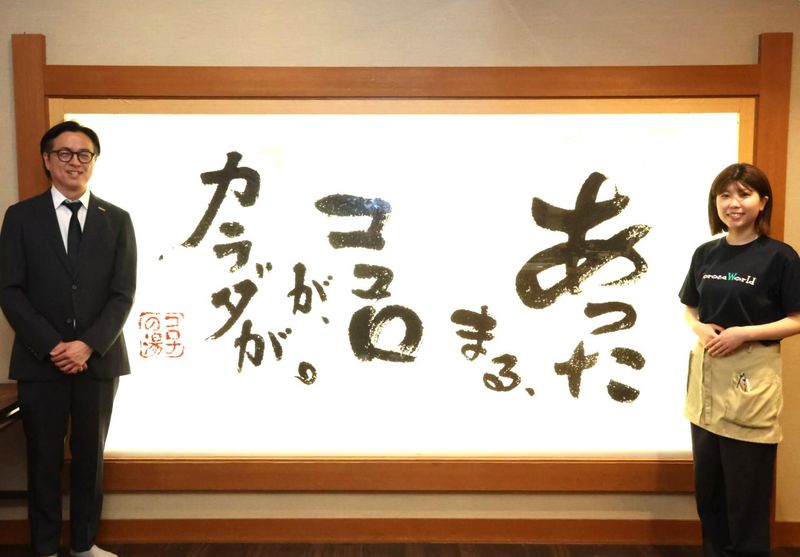 あった
まる、
ココロ
が、
カラダが。
コロナ
の湯
orona World